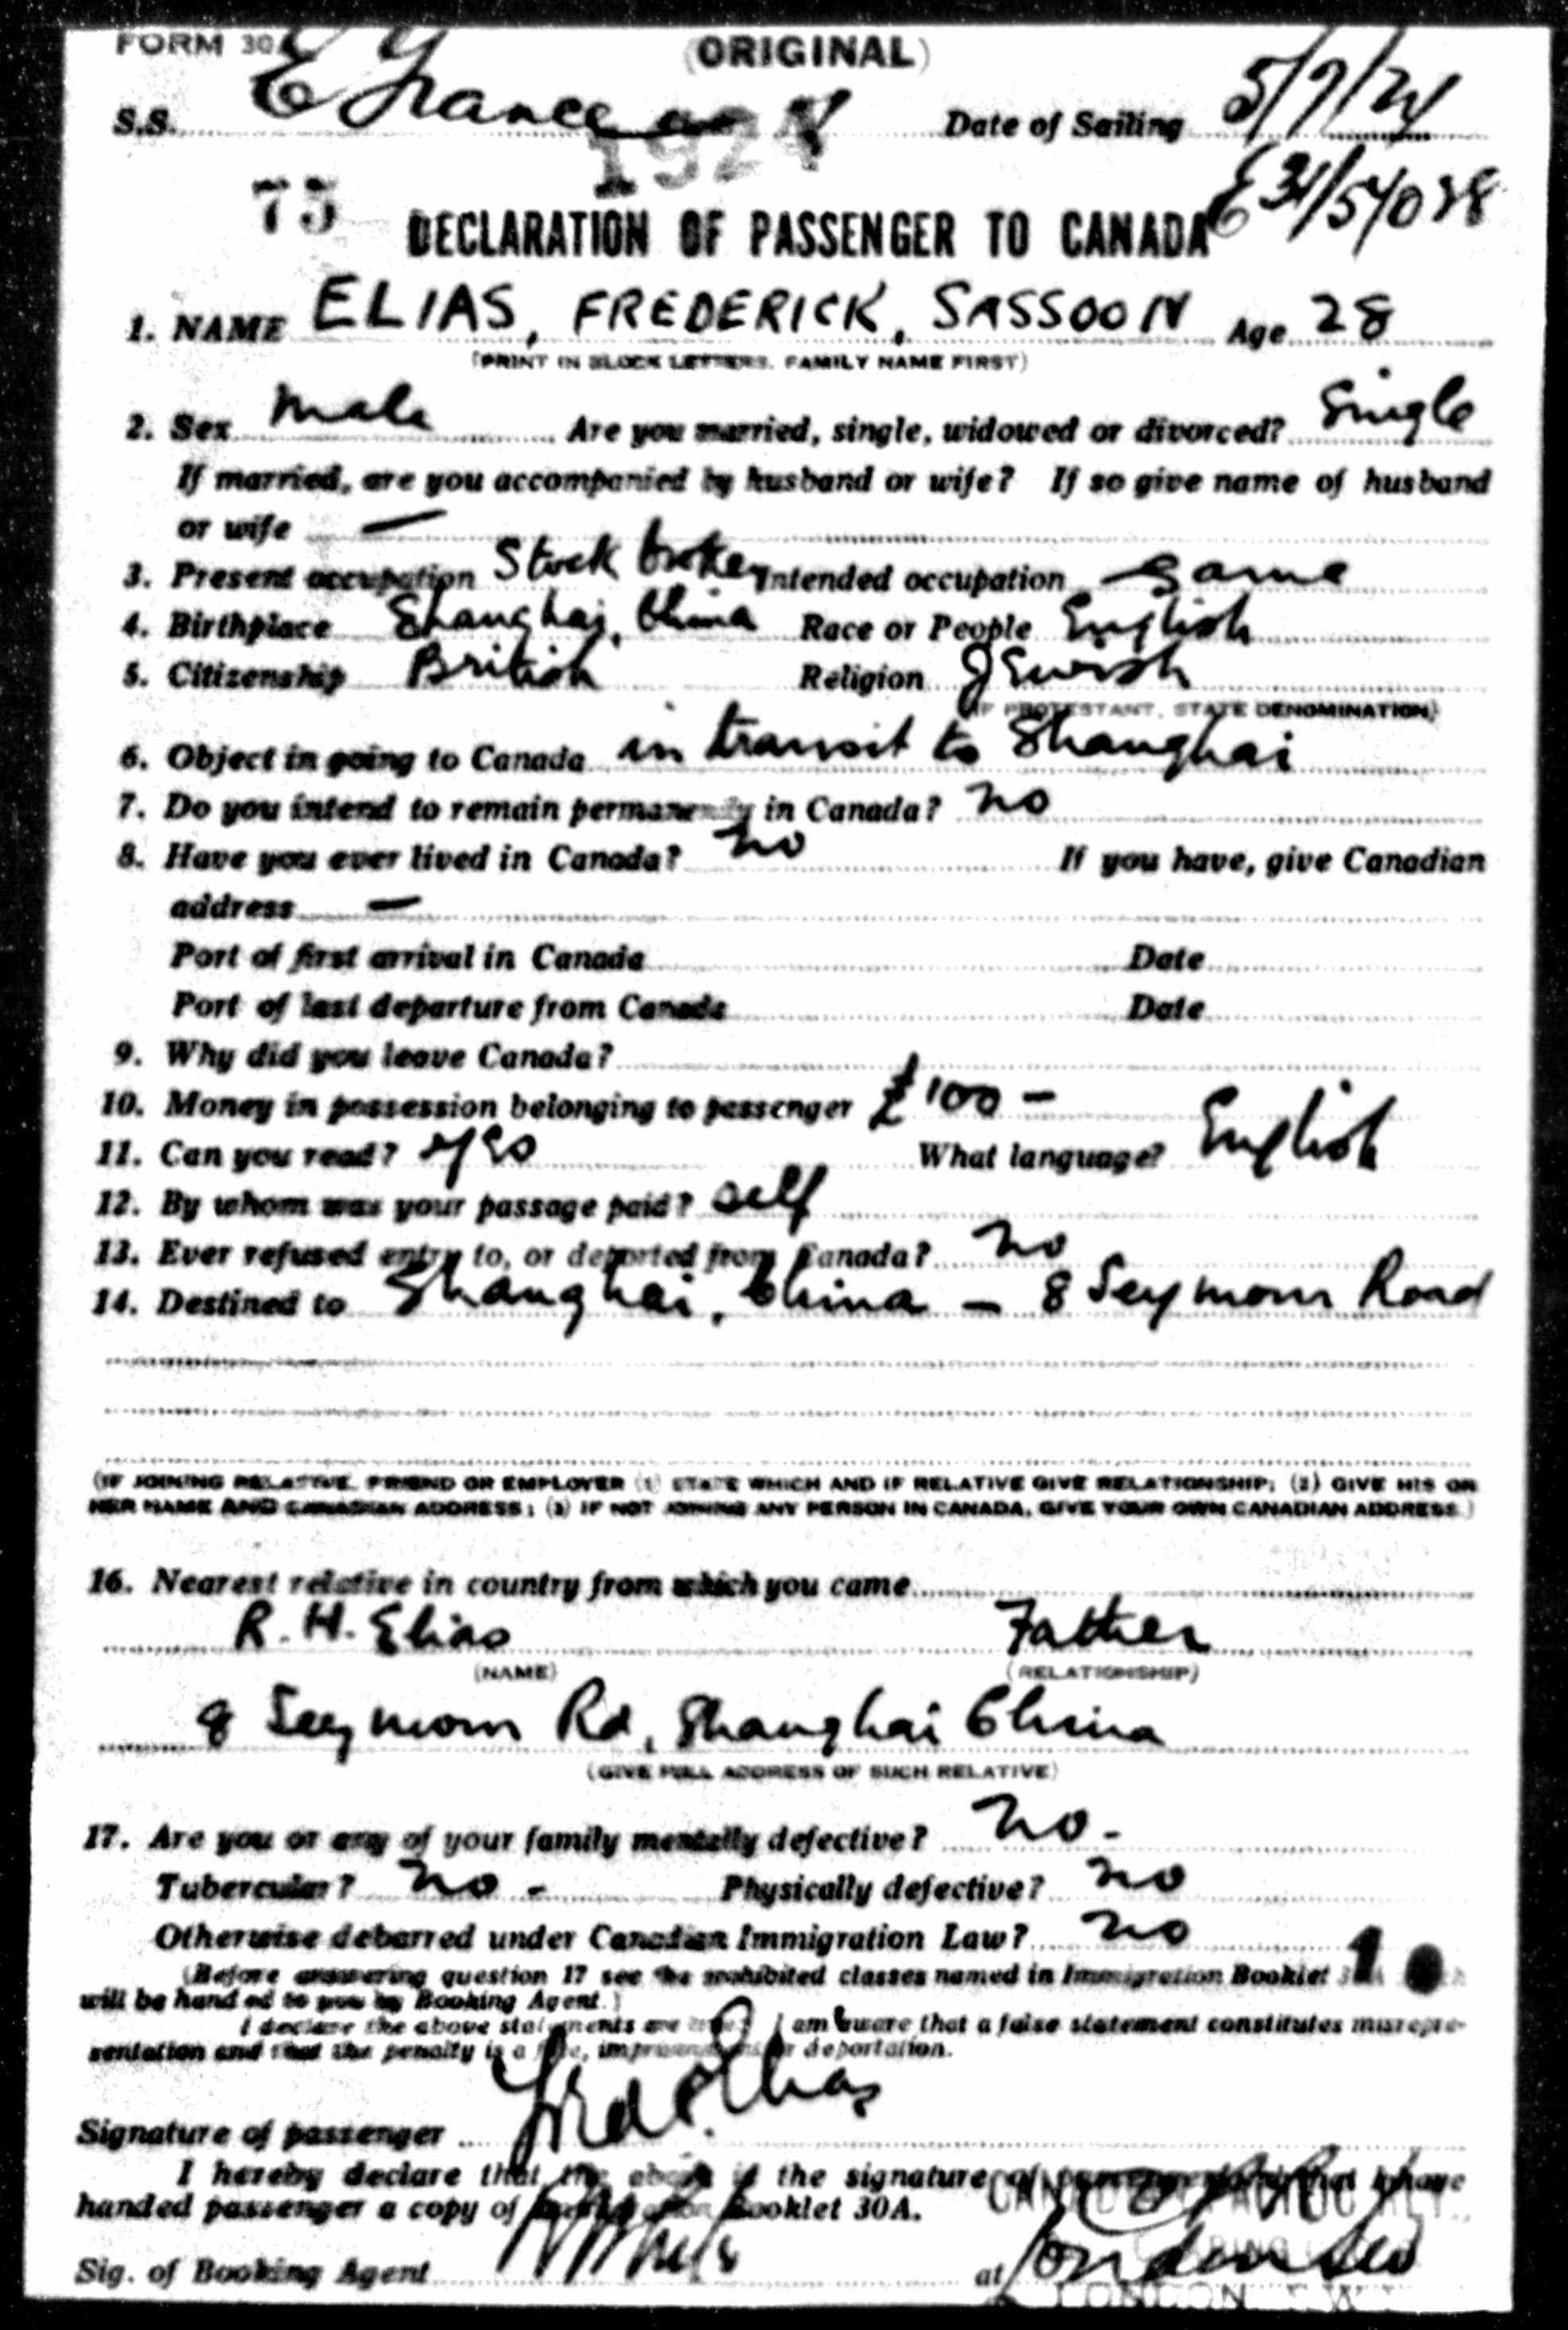 FORM 30A (ORIGINAL)
S.S. E France Date of Sailing 5/7/24
1924
75 E31/54098
DECLARATION OF PASSENGER TO CANADA
1. NAME ELIAS, FREDERICK, SASSOON Age 28
(PRINT IN BLOCK LETTERS. FAMILY NAME FIRST)
2. Sex male Are you married, single, widowed or divorced? Single
If married, are you accompanied by husband or wife? If so give name of husband
or wife —
3. Present occupation Stock broker Intended occupation Same
4. Birthplace Shanghai, China Race or People English
5. Citizenship British Religion Jewish
(IF PROTESTANT, STATE DENOMINATION)
6. Object in going to Canada in transit to Shanghai
7. Do you intend to remain permanently in Canada? no
8. Have you ever lived in Canada? no If you have, give Canadian
address —
Port of first arrival in Canada Date
Port of last departure from Canada Date
9. Why did you leave Canada?
10. Money in possession belonging to passenger £100 -
11. Can you read? yes What language? English
12. By whom was your passage paid? self
13. Ever refused entry to, or deported from Canada? no
14. Destined to Shanghai, China - 8 Seymour Road
(IF JOINING RELATIVE, FRIEND OR EMPLOYER (1) STATE WHICH AND IF RELATIVE GIVE RELATIONSHIP; (2) GIVE HIS OR
HER NAME AND CANADIAN ADDRESS; (3) IF NOT JOINING ANY PERSON IN CANADA, GIVE YOUR OWN CANADIAN ADDRESS.)
16. Nearest relative in country from which you came
R. H. Elias Father
(NAME) (RELATIONSHIP)
8 Seymour Rd, Shanghai China
(GIVE FULL ADDRESS OF SUCH RELATIVE)
17. Are you or any of your family mentally defective? no -
Tubercular? no - Physically defective? no
Otherwise debarred under Canadian Immigration Law? no
(Before answering question 17 see the prohibited classes named in Immigration Booklet
will be handed to you by Booking Agent.)
I declare the above statements are true. I am aware that a false statement constitutes misrepre-
sentation and that the penalty is a fine, imprisonment or deportation.
Signature of passenger Fred Elias
I hereby declare that the above is the signature of
handed passenger a copy of Booklet 30A.
Sig. of Booking Agent at London
LONDON